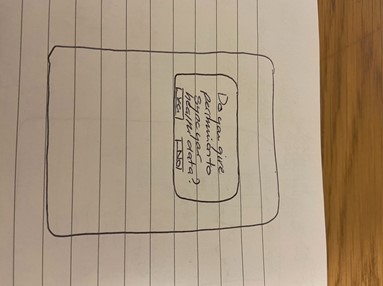 Do you give
permission to
sync your
health data?
Yes No